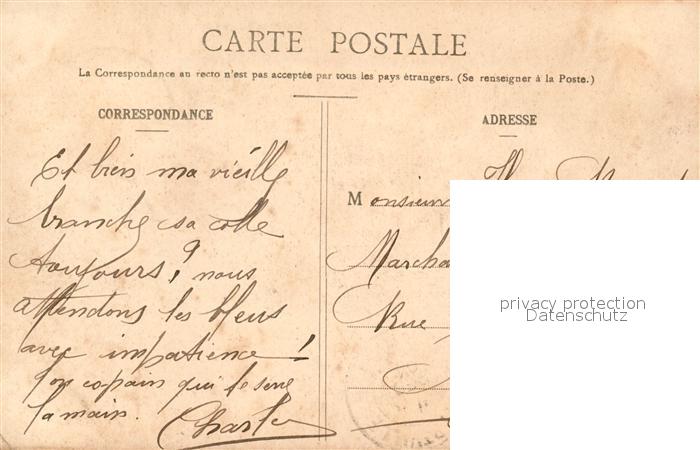 CARTE POSTALE
La Correspondance au recto n'est pas acceptée par tous les pays étrangers. (Se renseigner à la Poste.)
CORRESPONDANCE
Et bien ma vieille
branche ça colle
toujours? nous
attendons les bleus
avec impatience!
ton copain qui te serre
la main.
Charle
ADRESSE
Monsieur
Marcha
Rue
privacy protection
Datenschutz